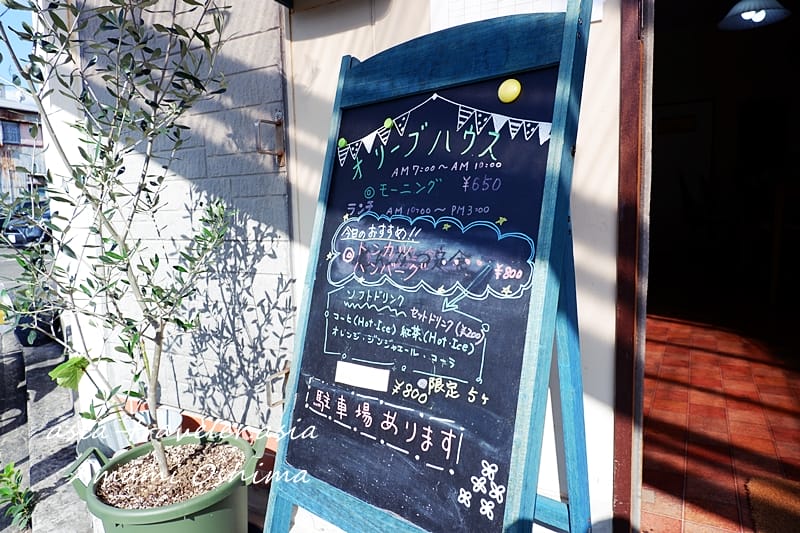 オリーブハウス
AM 7:00～AM 10:00
◎モーニング ¥650
ランチ AM 10:00～PM 3:00
今日のおすすめ!!
◎トンカツ
ハンバーグ ¥800
ソフトドリンク
セットドリンク(¥200)
コーヒ(Hot・Ice) 紅茶(Hot・Ice)
オレンジ・ジンジャエール・コーラ
¥800 限定5ヶ
駐車場あります!
asia travelen asia
Amami Oshima